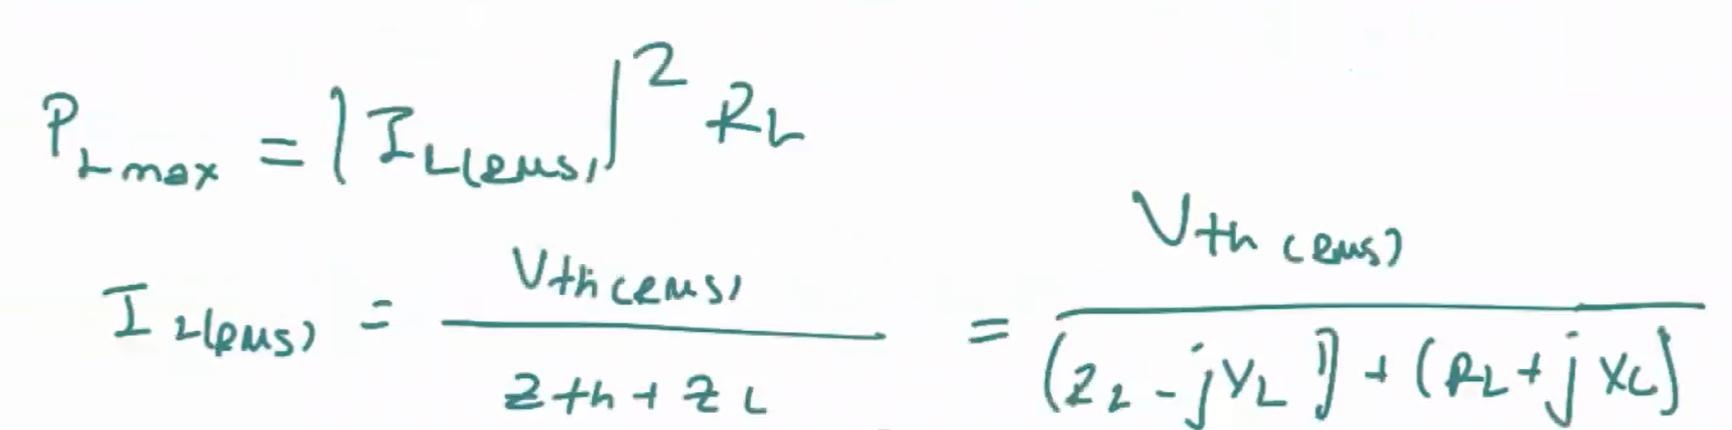 P_{Lmax} = |I_{L(RMS)}|^2 R_L
I_{L(RMS)} = \frac{V_{th(RMS)}}{Z_{th} + Z_L} = \frac{V_{th(RMS)}}{(R_L - jX_L) + (R_L + jX_L)}